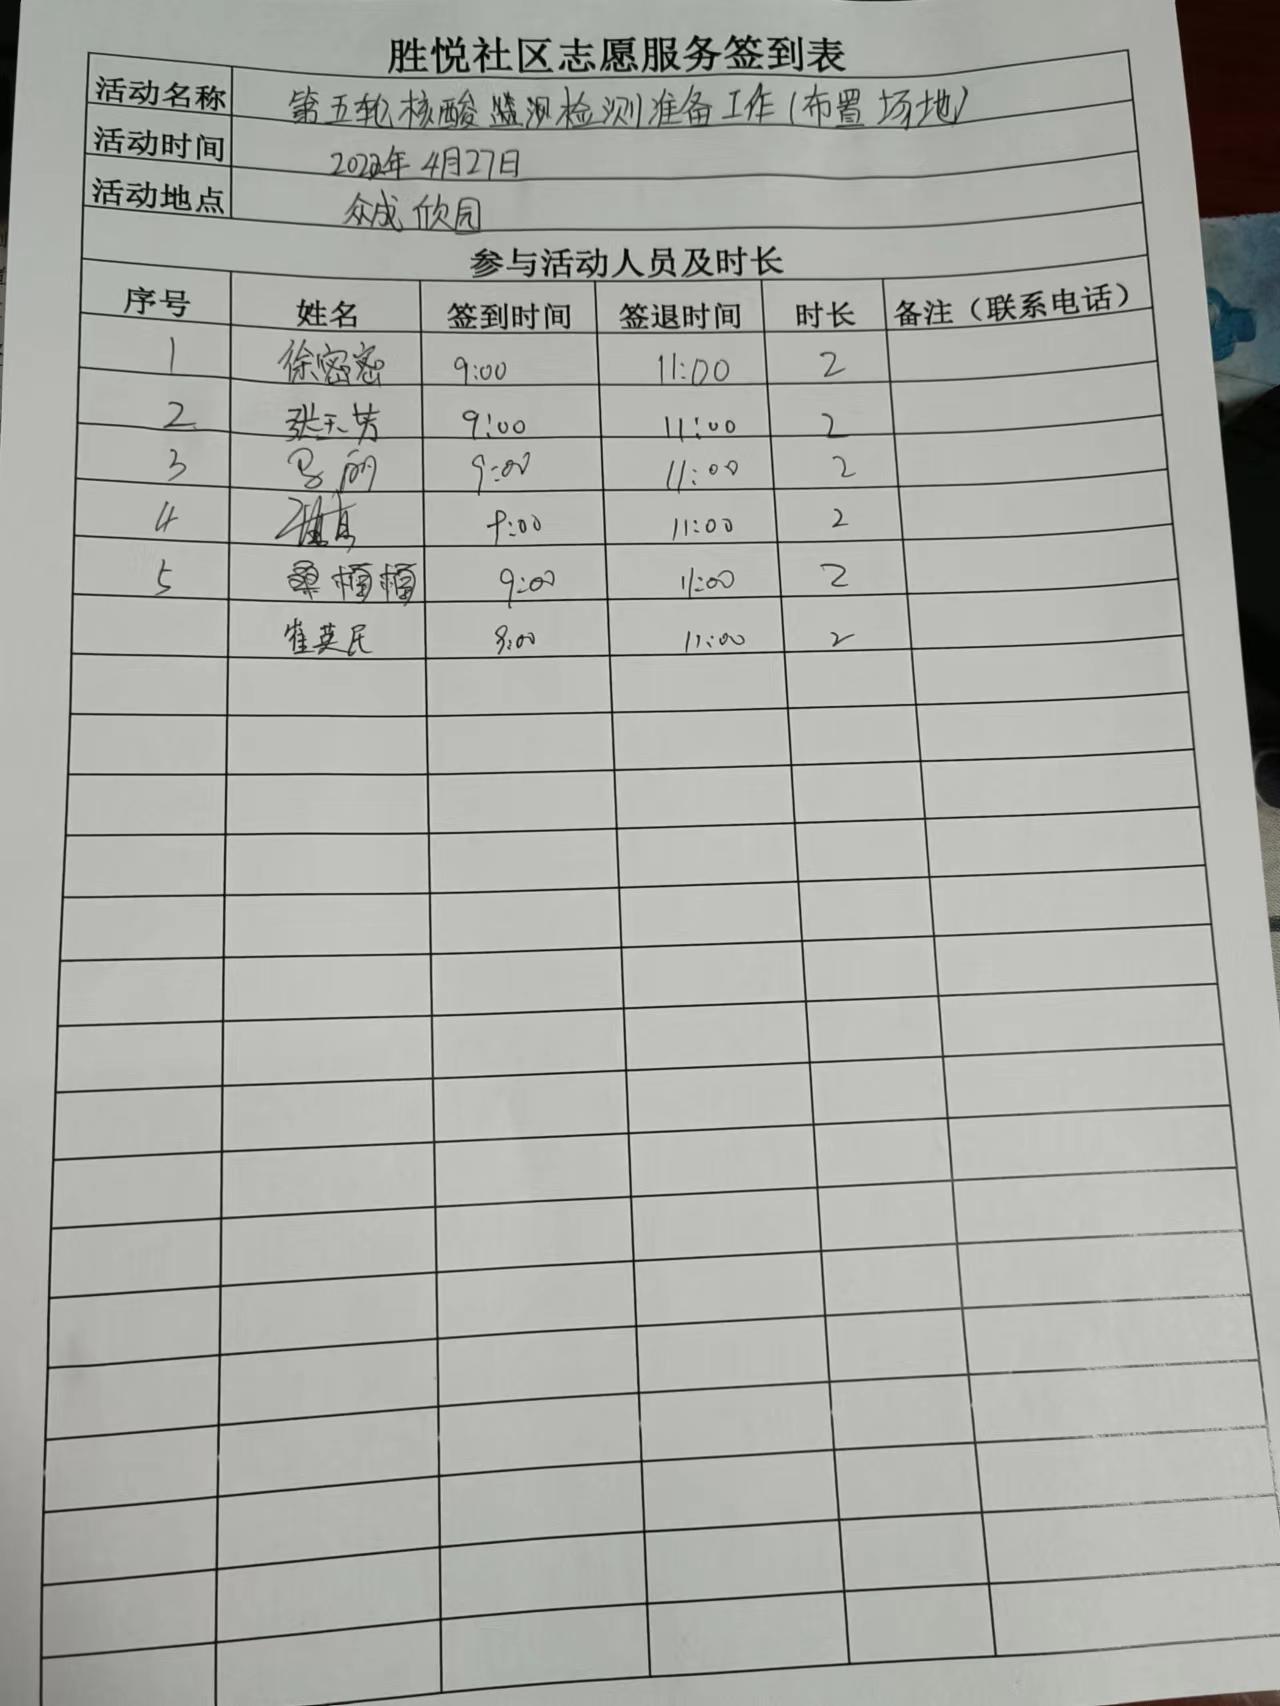 胜悦社区志愿服务签到表
活动名称 第五轮核酸监测检测准备工作(布置场地)
活动时间 2022年4月27日
活动地点 众成欣园
参与活动人员及时长
序号 姓名 签到时间 签退时间 时长 备注（联系电话）
1 徐密密 9:00 11:00 2
2 张玉芳 9:00 11:00 2
3 9:00 11:00 2
4 9:00 11:00 2
5 桑楠楠 9:00 11:00 2
崔英民 9:00 11:00 2